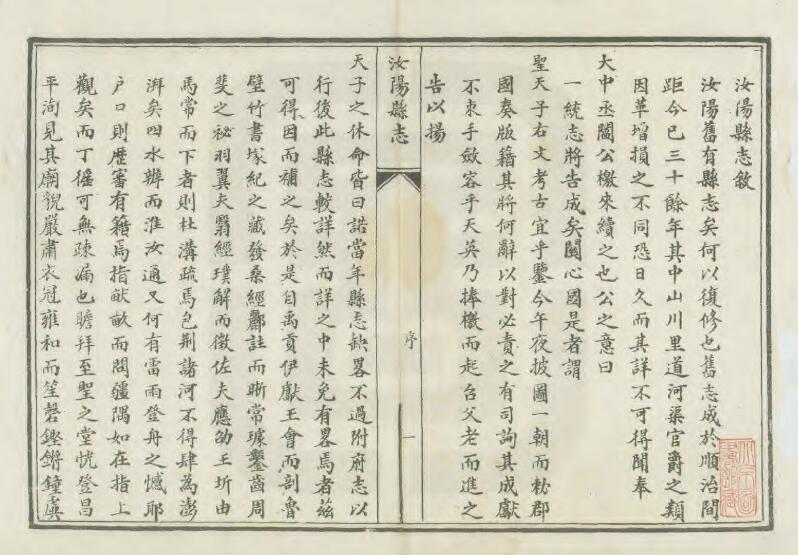 汝陽縣志敘
汝陽舊有縣志矣何以復修也舊志成於順治間
距今已三十餘年其中山川里道河渠官爵之類
因革增損之不同恐日久而其詳不可得聞奉
大中丞閻公檄來續之也公之意曰
一統志將告成矣關心國是者謂
聖天子右文考古宜乎鑒今午夜披圖一朝而勑郡
國奏版籍其將何辭以對必責之有司詢其成獻
不朿手斂容乎天英乃捧檄而起召父老而進之
告以揚
汝陽縣志
序
一
天子之休命皆曰諾當年縣志缺畧不過附府志以
行後此縣志較詳然而詳之中未免有畧焉者茲
可得因而補之矣於是自禹貢伊獻王會而剖魯
壁竹書塚紀之藏發桑經酈註而晰常璩鑿齒周
斐之祕羽翼夫翳經璞解而徵佐夫應劭王圻由
馬常而下者則杜溝疏焉包荆諸河不得肆為澎
湃矣四水辨而淮汝通又何有雷雨登舟之憾耶
户口則歷審有籍焉指畎畝而問疆隅如在指上
觀矣而丁徭可無疎漏也瞻拜至聖之堂恍登昌
平洵見其廟貌嚴肅衣冠雍和而笙磬鏗鏘鐘虡